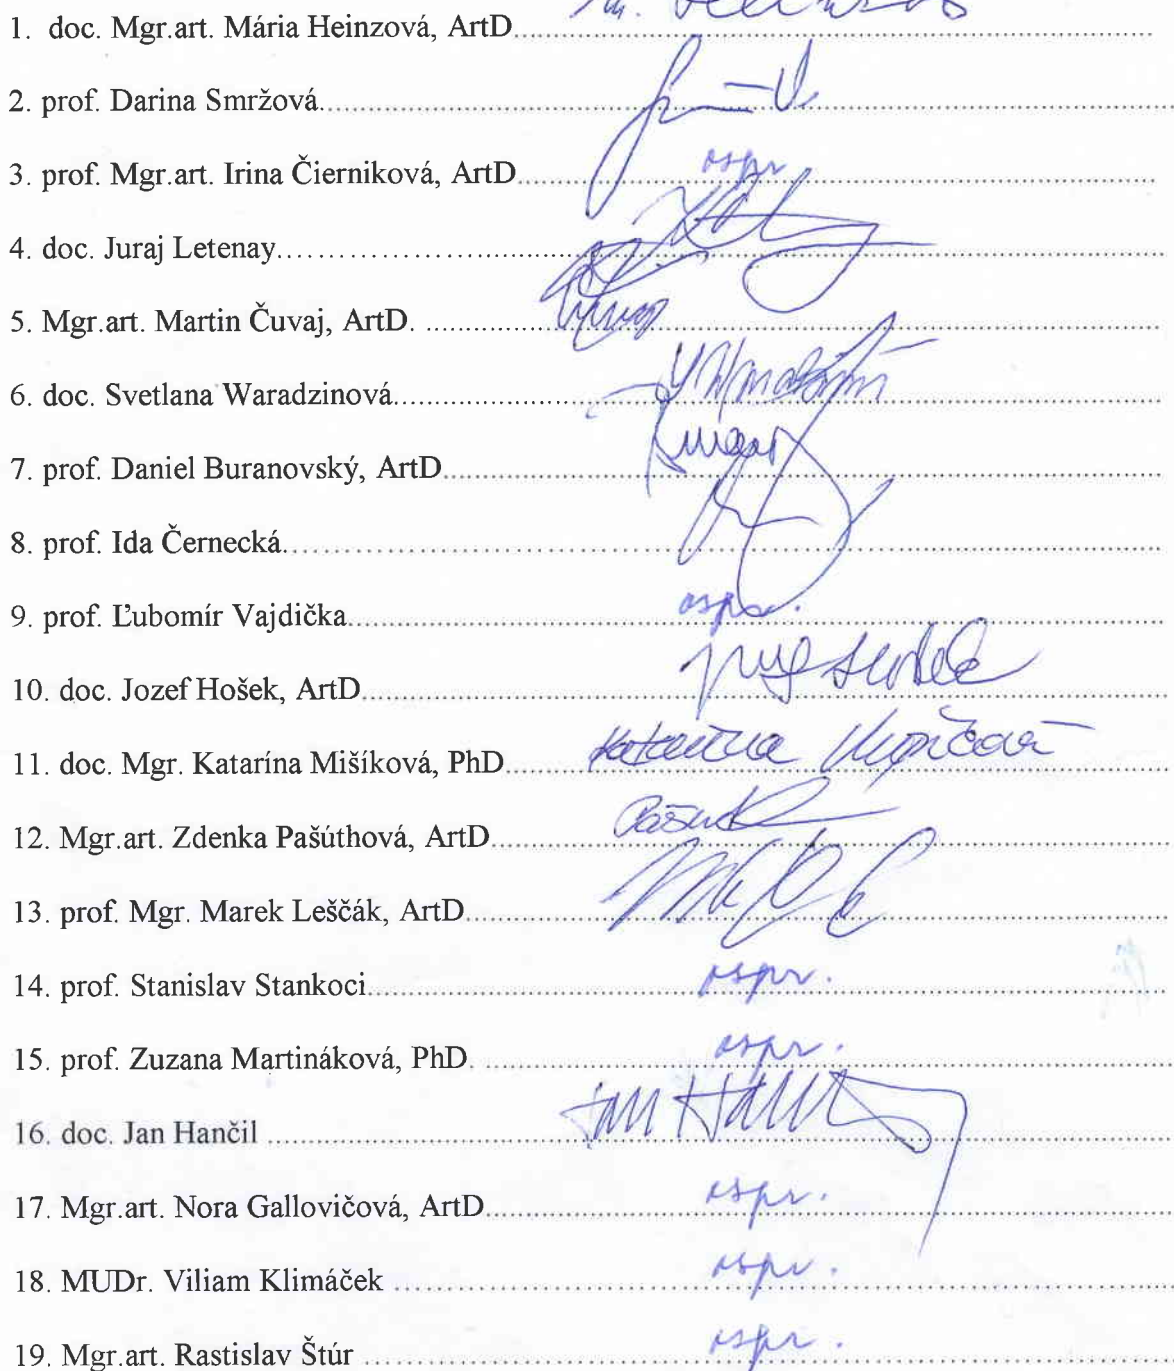 1. doc. Mgr.art. Mária Heinzová, ArtD
2. prof. Darina Smržová
3. prof. Mgr.art. Irina Čierniková, ArtD ospr.
4. doc. Juraj Letenay
5. Mgr.art. Martin Čuvaj, ArtD.
6. doc. Svetlana Waradzinová
7. prof. Daniel Buranovský, ArtD
8. prof. Ida Černecká
9. prof. Ľubomír Vajdička ospr.
10. doc. Jozef Hošek, ArtD
11. doc. Mgr. Katarína Mišíková, PhD Katarína
12. Mgr.art. Zdenka Pašúthová, ArtD
13. prof. Mgr. Marek Leščák, ArtD
14. prof. Stanislav Stankoci ospr.
15. prof. Zuzana Martináková, PhD. ospr.
16. doc. Jan Hančil Jan
17. Mgr.art. Nora Gallovičová, ArtD ospr.
18. MUDr. Viliam Klimáček ospr.
19. Mgr.art. Rastislav Štúr ospr.